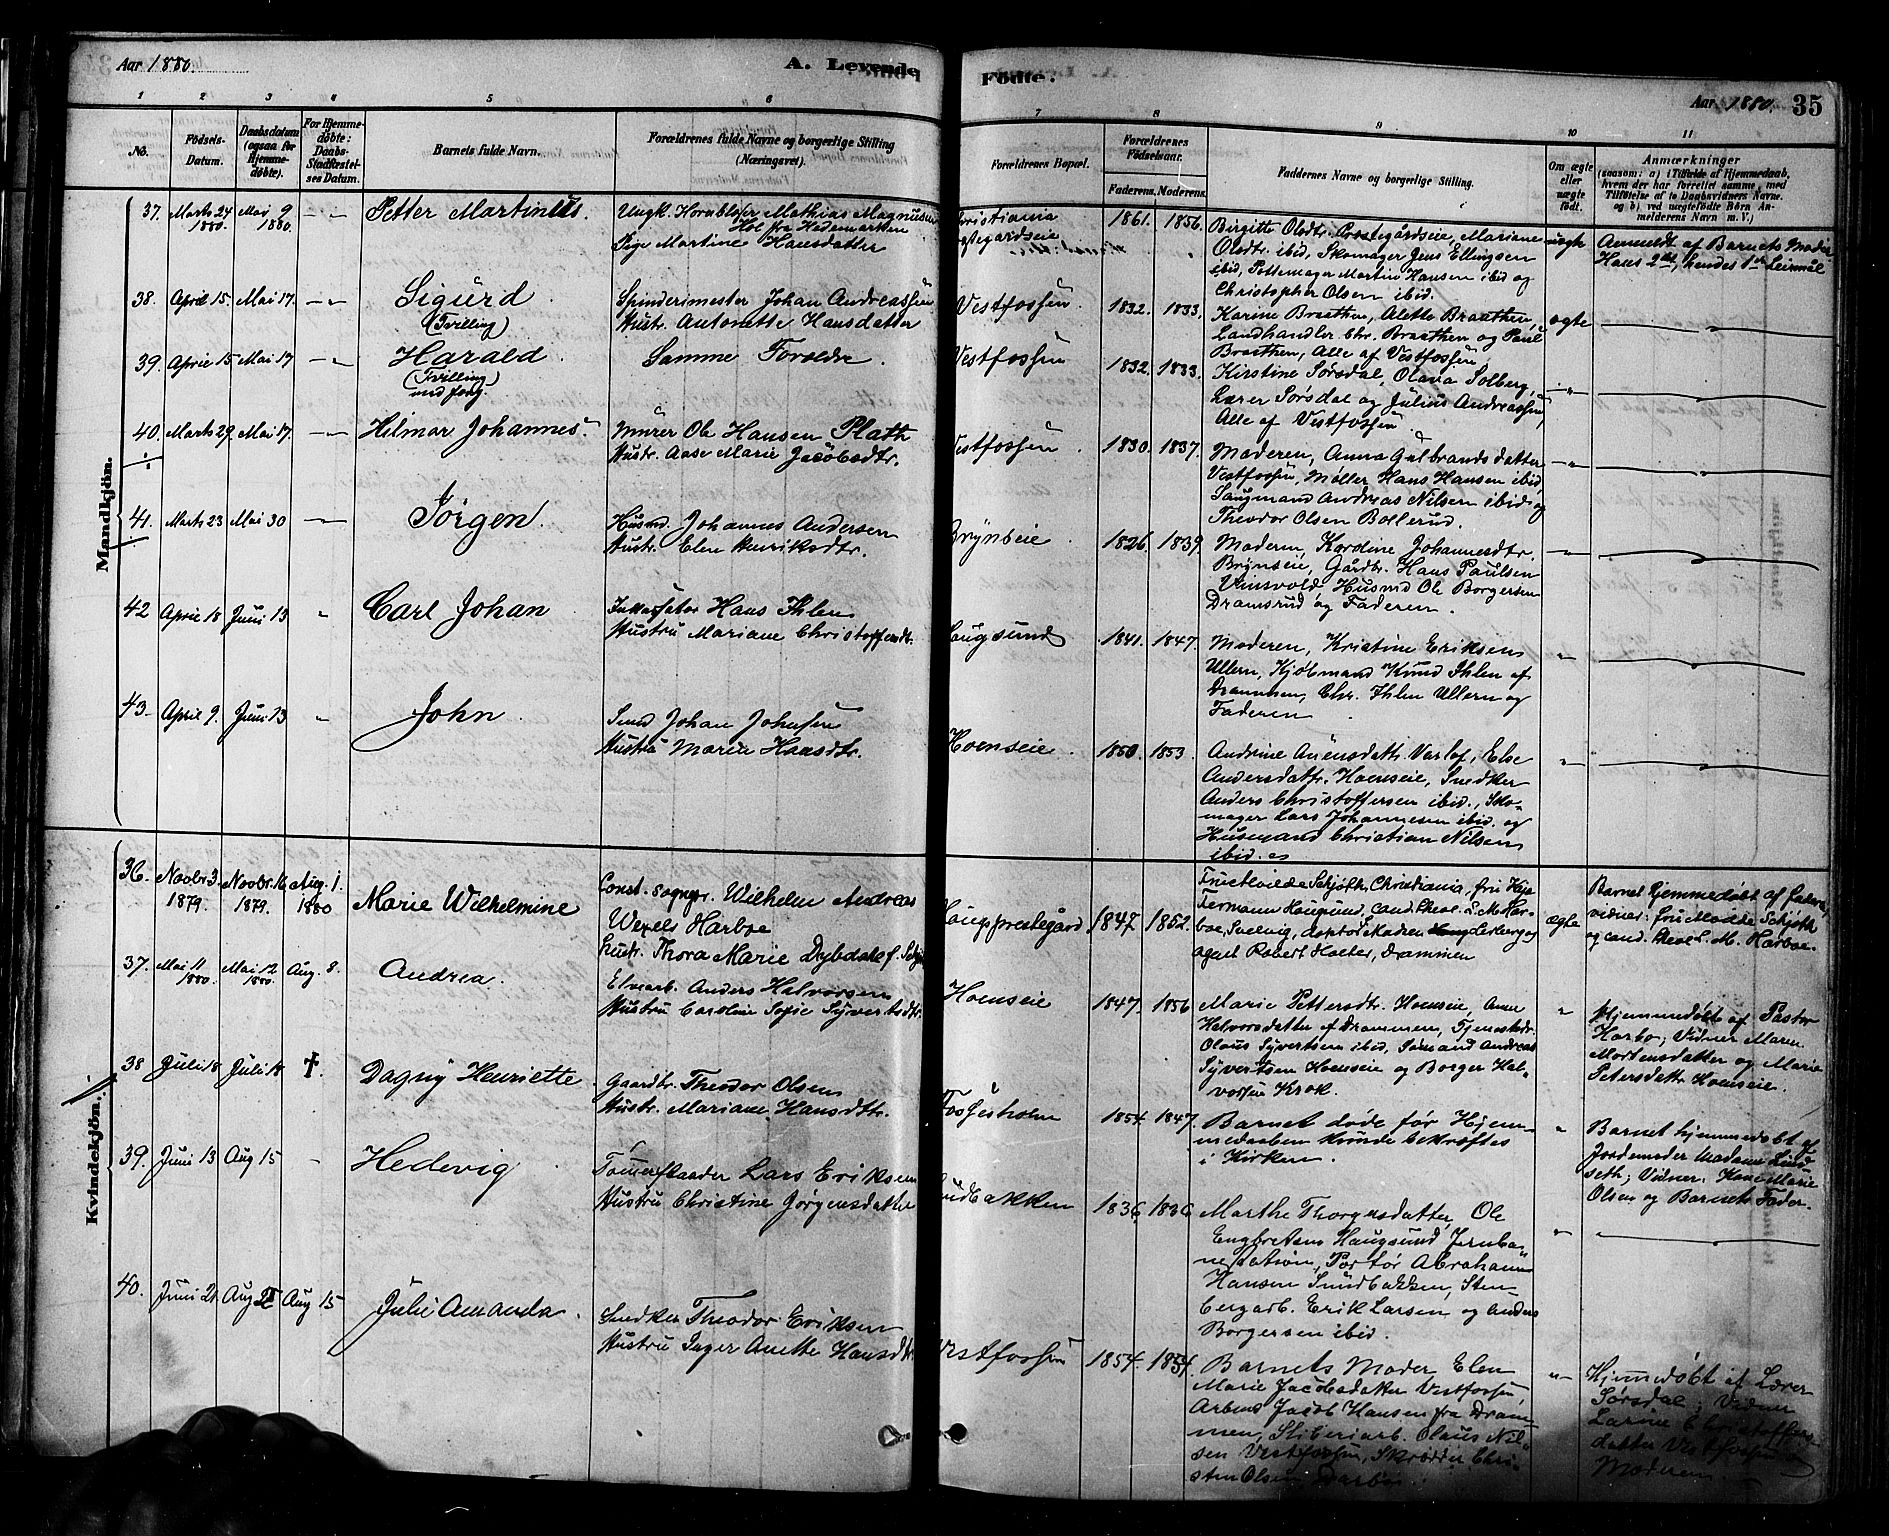 Aar 1880.
A. Levende
Födte.
Aar 1880. 35
1 2 3 4 5 6 7 8 9 10 11
No.
Födsels-Datum.
Daabsdatum (ogsaa for Hjemme-döbte).
For Hjemme-döbte: Daabs-Stadfæstel-ses Datum.
Barnets fulde Navn.
Forældrenes fulde Navne og borgerlige Stilling (Næringsvei).
Forældrenes Bopæl.
Forældrenes Födselsaar.
Faderens. Moderens.
Faddernes Navne og borgerlige Stilling.
Om ægte eller uægte födt.
Anmærkninger
(saasom: a) i Tilfælde af Hjemmedaab,
hvem der har forrettet samme, med
Tilföielse af to Daabsvidners Navne,
og b) ved uægtefödte Börn An-
melderens Navn m. V.)
Mandkjön.
37. Marts 24 1880. Mai 9 1880. Petter Martinus.
Ungk. Hornblæser Mathias Magnusen
Hol fra Hedemarken
Pige Martine Hansdatter
1861. 1856.
Birgitte Olsdtr. Præstegårdseie, Mariane
Olsdtr. ibid, Skomager Jens Ellingsen
ibid, Pottemager Martin Hansen ibid og
Christopher Olsen ibid.
uægte
Anmeldt af Barnets Moder
Hans 2det, hendes 1ste Leiermål
38. April 15. Mai 17. Sigurd
(Tvilling)
Spinderimester Johan Andreassen
Hustr. Antonette Hansdatter
Vestfossen. 1832. 1833.
Karine Braathen, Alette Braathen,
Landhandler Chr. Braathen og Paul
Braathen, Alle af Vestfossen
ægte
39. April 15 Mai 17 Harald
(Tvilling)
Samme Forældre
Vestfossen 1832. 1833.
Kirstine Sørsdal, Olava Solberg,
Lærer Sørsdal og Julius Andreassen,
Alle af Vestfossen
40. Marts 29 Mai 17. Hilmar Johannes.
Murer Ole Hansen Plath
Hustr. Aase Marie Jacobsdtr.
Vestfossen. 1830. 1837.
Moderen, Anna Gulbrandsdatter
Vestfossen, Møller Hans Hansen ibid
Saugmand Andreas Nilsen ibid og
Theodor Olsen Bollerud.
41. Marts 23 Mai 30 Jörgen.
Husmd. Johannes Andersen
Hustr. Elen Henriksdtr.
Brynseie. 1826. 1839.
Moderen, Karoline Johannesdtr.
Brynseie, Gårdbr. Hans Paulsen
Vinsvold, Husmd Ole Borgersen
Dramsrud og Faderen.
42 April 18 Juni 13 Carl Johan
Inkassator Hans Ihlen
Hustru Mariane Christoffersdtr.
Haugsund 1841. 1847.
Moderen, Kristine Eriksen
Ullern, Kjöbmand Knud Ihlen af
Drammen, Chr. Ihlen Ullern og
Faderen
43. April 9. Juni 13 John.
Smed Johan Johnsen
Hustru Maren Hansdtr.
Hoenseie. 1850. 1853.
Andersdatr. Hoenseie, Snedker
Anders Christoffersen ibid., Sko-
mager Lars Johannesen ibid. og
Husmand Christian Nilsen
ibid.
Kvindekjön.
36. Novbr 3. 1879. Novbr. 16 1879. Aug. 1. 1880 Marie Wilhelmine
Const. sognepr. Wilhelm Andreas
Wexels Harboe
Hustr. Thora Marie Dybdahl f.
Haugs prestegård 1847 1852.
agent Robert Holter, Drammen
ægte
Barnet hjemmedøbt af faderen,
vidner: fru Mathilde Schjøth
og cand. theol. L. M. Harboe.
37. Mai 11 1880. Mai 12 1880. Aug. 8. Andrea.
Elvearb. Anders Halvorsen
Hustru Caroline Sofie Syvertsdtr.
Hoenseie 1847. 1856
Marie Pettersdtr. Hoenseie, Anne
Halvorsdatter af Drammen, Tjenestedr.
Olaus Syvertsen ibid, Sømand Andreas
Syvertsen Hoenseie og Borger Hal-
vorsen Krok.
Hjemmedøbt af Pastor
Harbo; Vidner Maren
Mortensdatter og Marie
Petersdatr. Hoenseie.
38 Juli 18 Juli 18 †. Dagny Henriette.
Gaardbr. Theodor Olsen
Hustr. Mariane Hansdtr.
Fossesholm 1854. 1847.
Barnet døde før Hjem-
medaaben kunde bekræftes
i Kirken.
Barnet hjemmedøbt af
Jordemoder Madame Lind-
seth; Vidner. Kone Marie
Olsen og Barnets Fader.
39. Juni 13 Aug 15 Hedevig
Lars Eriksen
Hustru Christine Jörgensdatter
Sundbakken 1836. 1836
Marthe Thorgersdatter, Ole
Engbretsen Haugsund Jernba-
nestation, Portør Abraham
Hansen Sundbakken, Sten-
bergarb. Erik Larsen og Anders
Borgersen ibid.
40. Juni 21 Aug Aug 15 Julie Amanda.
Snedker Theodor Eriksen
Hustru Inger Anette Hansdtr
Vestfossen 1854. 1854.
Barnets Moder Elen
Marie Jacobsdatter Vestfossen
Arbmd Jacob Hansen fra Dram-
men, Sliberiarb. Olaus Nil-
sen Vestfossen, Skrædder Chri-
sten Olsen Darbo.
Hjemmedøbt af Lærer
Sørsdal; Vidner
Moderen